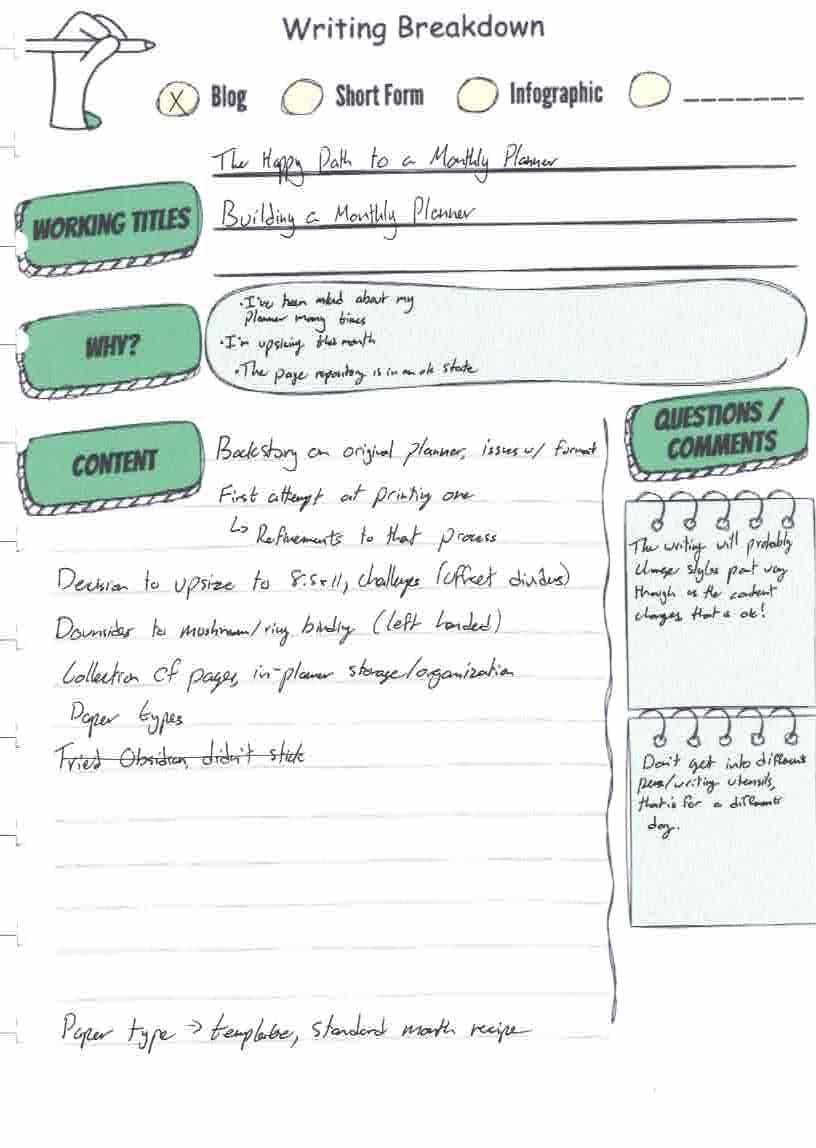 Writing Breakdown
X Blog Short Form Infographic _______
The Happy Path to a Monthly Planner
WORKING TITLES
Building a Monthly Planner
WHY?
·I've been asked about my
planner many times
·I'm upsizing this month
·The page repository is in an ok state
CONTENT
Backstory on original planner, issues w/ format
First attempt at printing one
↳ Refinements to that process
Decision to upsize to 8.5x11, challenges (offset dividers)
Downsides to mushroom/ring binding (left handed)
Collection of pages, in-planner storage/organization
Paper types
Tried Obsidian, didn't stick
Paper type → template, standard month recipe
QUESTIONS /
COMMENTS
The writing will probably
change styles part way
through as the content
changes, that's ok!
Don't get into different
pens/writing utensils,
that is for a different
day.